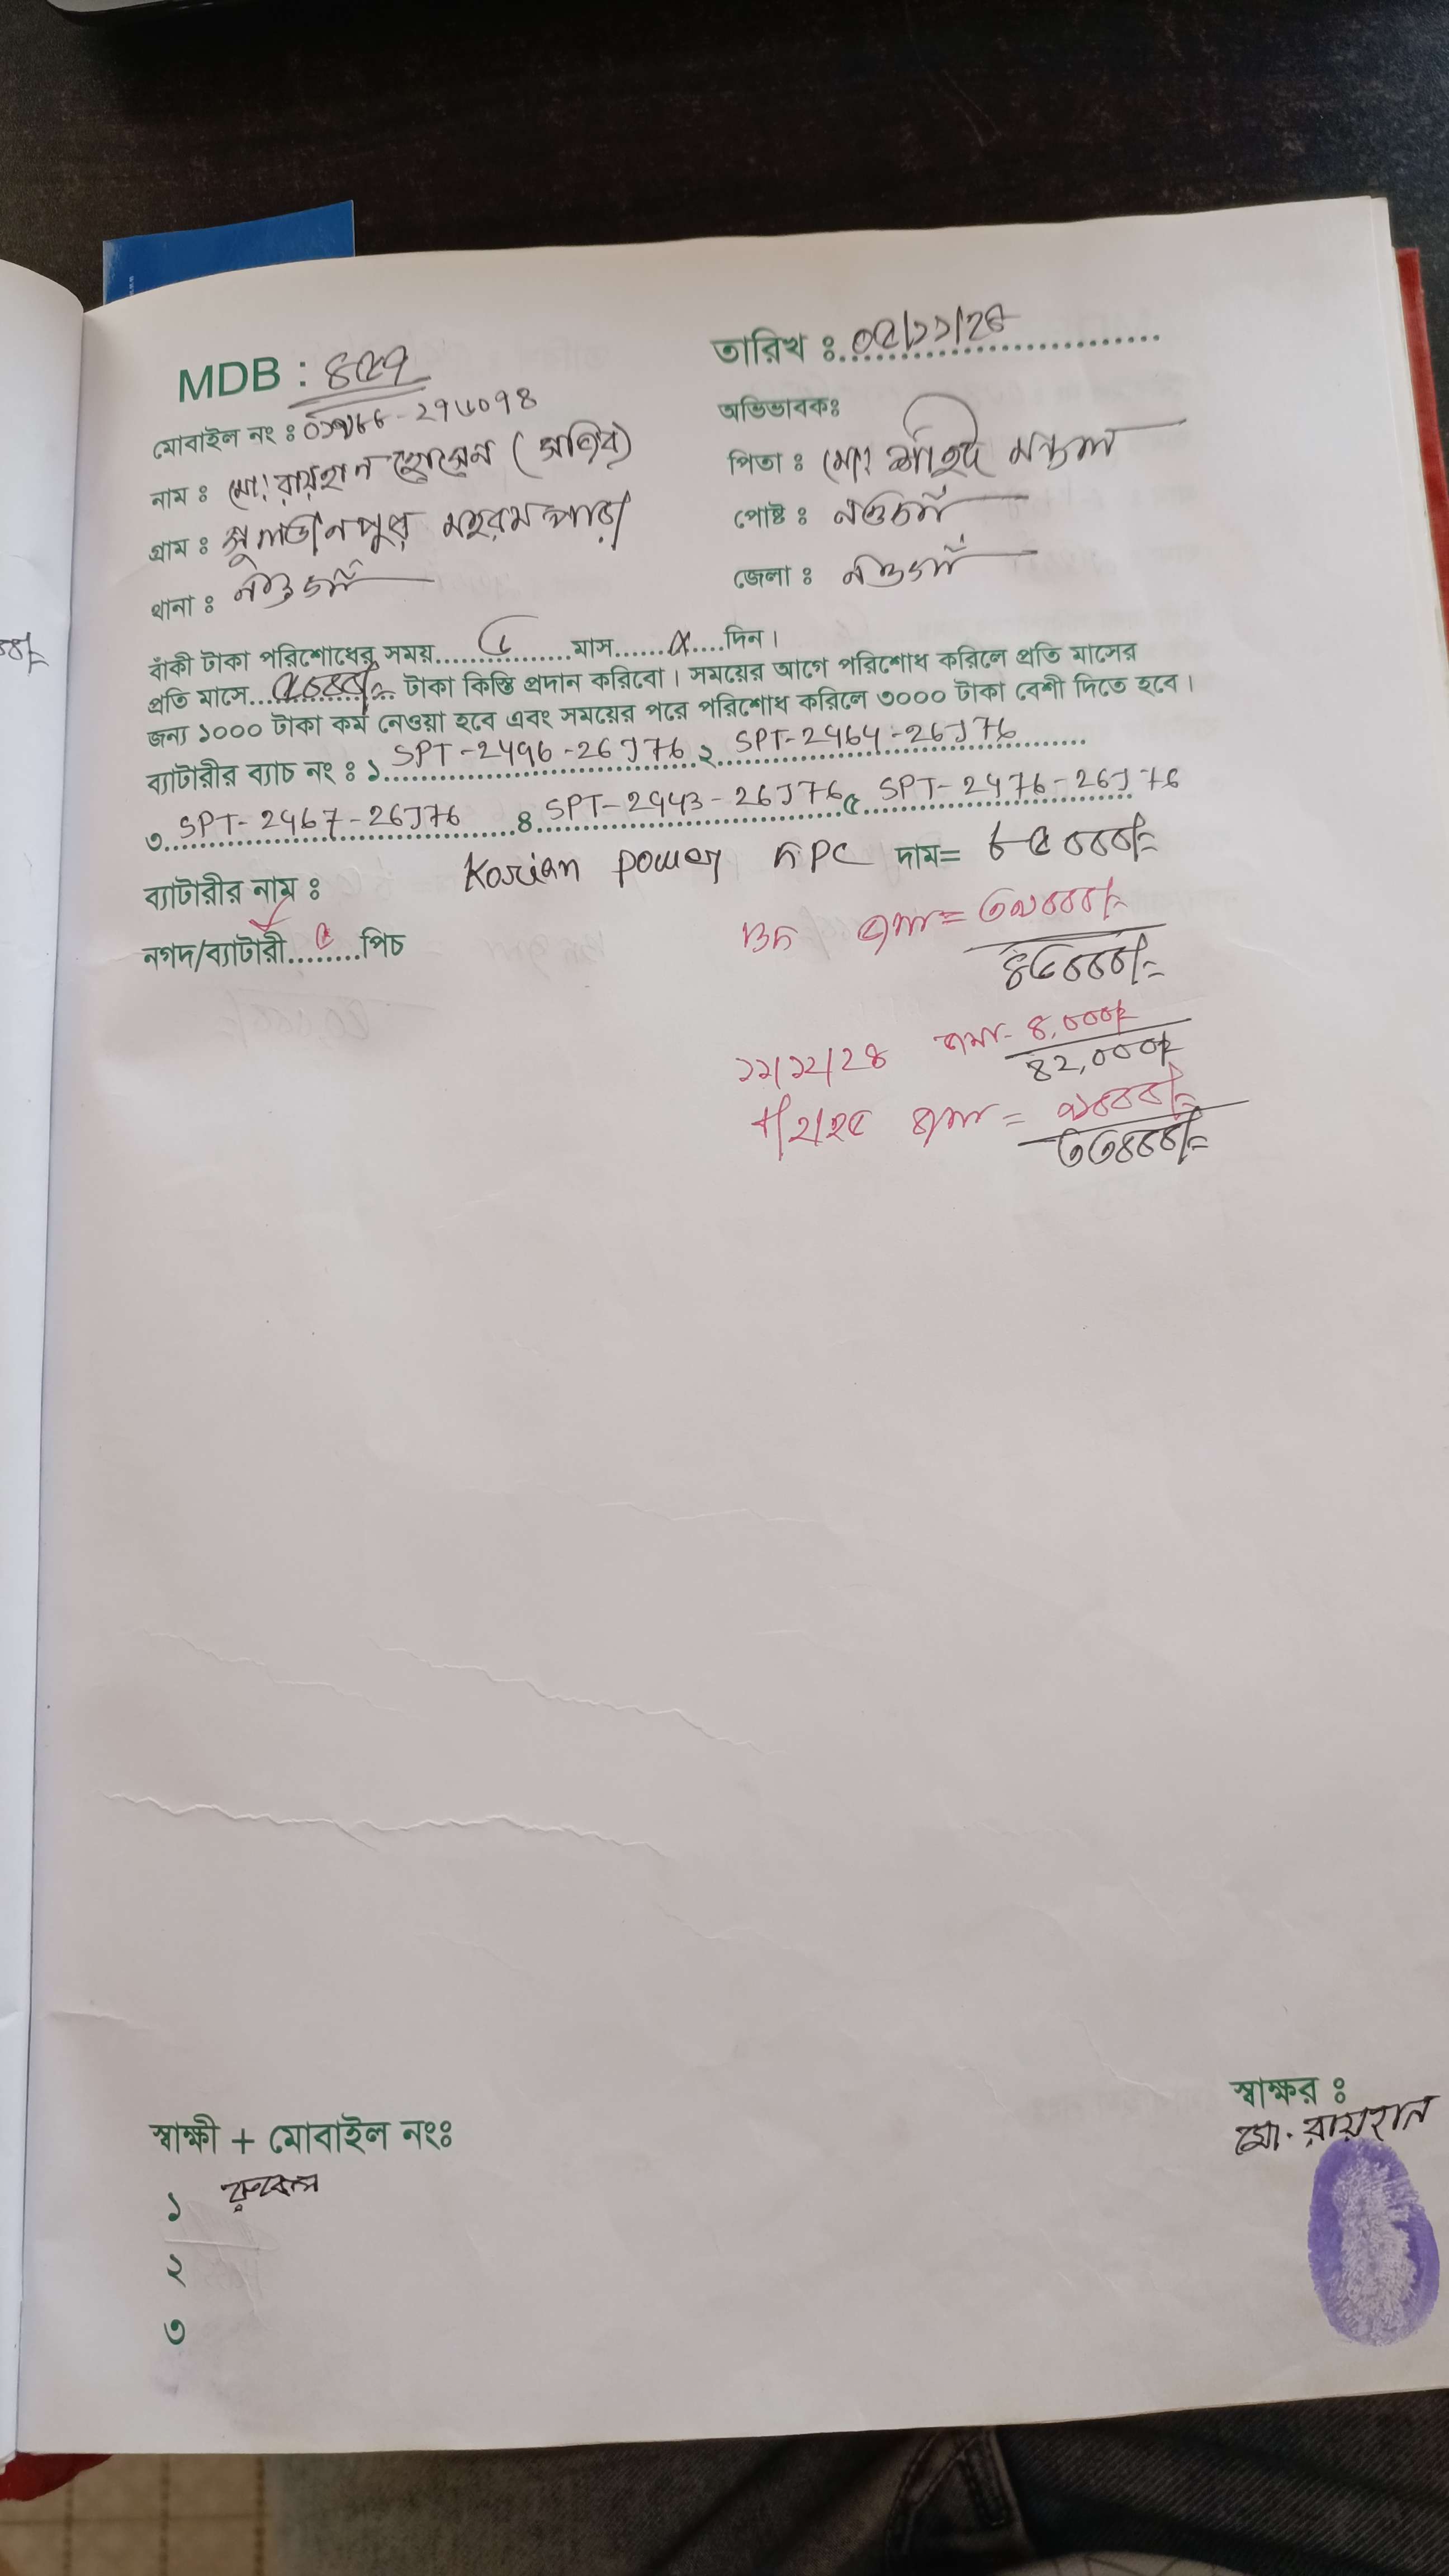 MDB : ৪৫৭
তারিখ ঃ ০৫/১১/২৪
মোবাইল নং ঃ
অভিভাবকঃ
নাম ঃ মো: রায়হান হোসেন
পিতা ঃ মো: শহিদ মন্ডল
গ্রাম ঃ সুলতানপুর মহরমপাড়া
পোষ্ট ঃ নওগাঁ
থানা ঃ নওগাঁ
জেলা ঃ নওগাঁ
বাঁকী টাকা পরিশোধের সময়..............মাস......... দিন।
প্রতি মাসে............ টাকা কিস্তি প্রদান করিবো। সময়ের আগে পরিশোধ করিলে প্রতি মাসের
জন্য ১০০০ টাকা কম নেওয়া হবে এবং সময়ের পরে পরিশোধ করিলে ৩০০০ টাকা বেশী দিতে হবে।
ব্যাটারীর ব্যাচ নং ঃ ১ SPT-2496-26J76 ২ SPT-2464-26J76
৩ SPT-2467-26J76 ৪ SPT-2443-26J76 ৫ SPT-2476-26J76
ব্যাটারীর নাম ঃ Korian power দাম= ৮৫০০০/=
নগদ/ব্যাটারী...৫...পিচ
জমা= ৩৯০০০/=
৪৬০০০/=
১১/১২/২৪ জমা- ৪,০০০/=
৪২,০০০/=
৮/২/২৫ জমা = ৯০০০/=
৩৩০০০/=
স্বাক্ষর ঃ
মো. রায়হান
স্বাক্ষী + মোবাইল নংঃ
১ রুবেল
২
৩